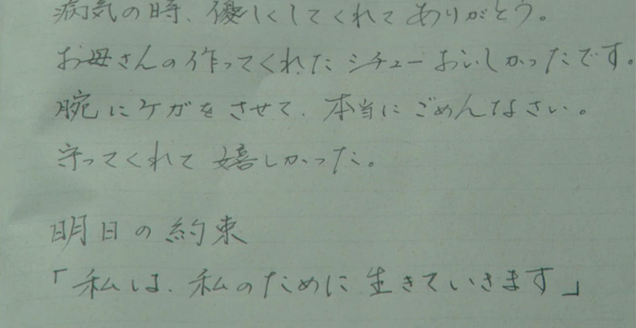 病気の時、優しくしてくれてありがとう。
お母さんの作ってくれたシチューおいしかったです。
腕にケガをさせて、本当にごめんなさい。
守ってくれて嬉しかった。
明日の約束
「私は、私のために生きていきます」